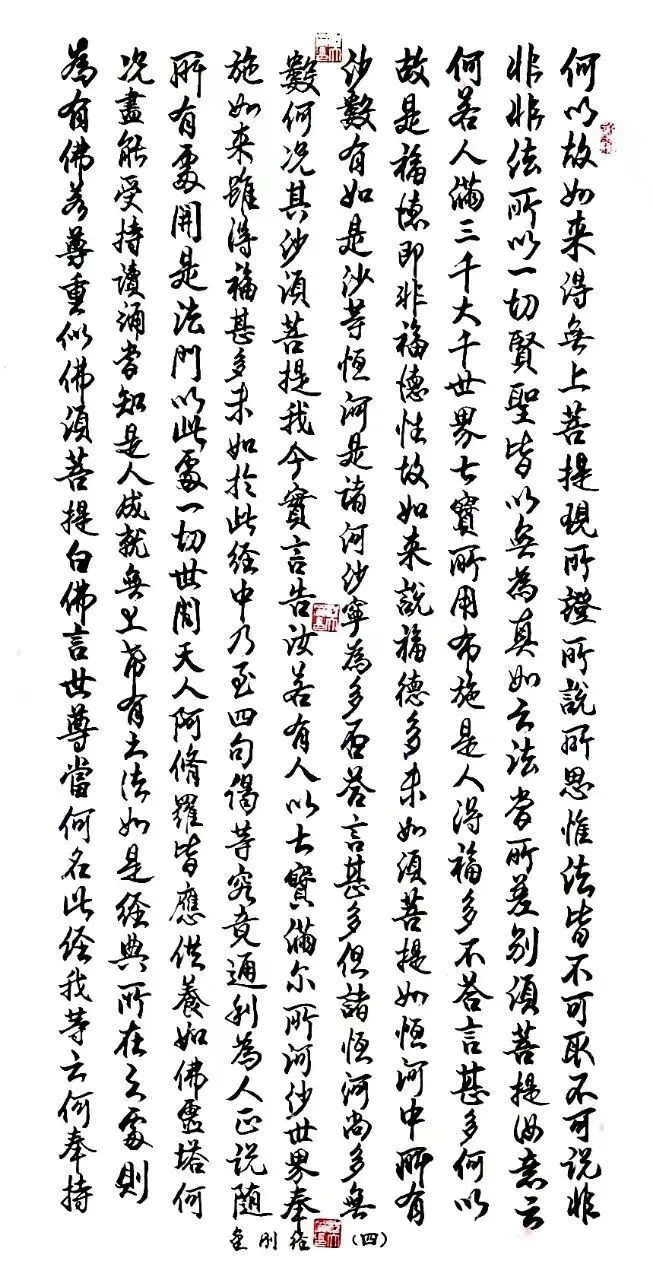 何以故如来得無上菩提現所證所說所思惟法皆不可取不可说非
非非法所以一切賢聖皆以無為真如之法者所差别須菩提汝意云
何若人滿三千大千世界七寶所用布施是人得福多不答言甚多何以
故是福德即非福德性故如来說福德多未如須菩提如恒河中所有
沙數有如是沙等恒河是諸河沙寧為多否答言甚多但諸恒河尚多無
數何况其沙須菩提我今實言告汝若有人以七寶滿尔所河沙世界奉
施如来雖得福甚多未如於此经中乃至四句偈等究竟通利為人正说随
所有處開是法門以此處一切世間天人阿脩羅皆應供養如佛靈塔何
况盡能受持讀誦當知是人成就無上希有之法如是经典所在之處則
為有佛若尊重似佛須菩提白佛言世尊當何名此经我等云何奉持
金刚经(四)